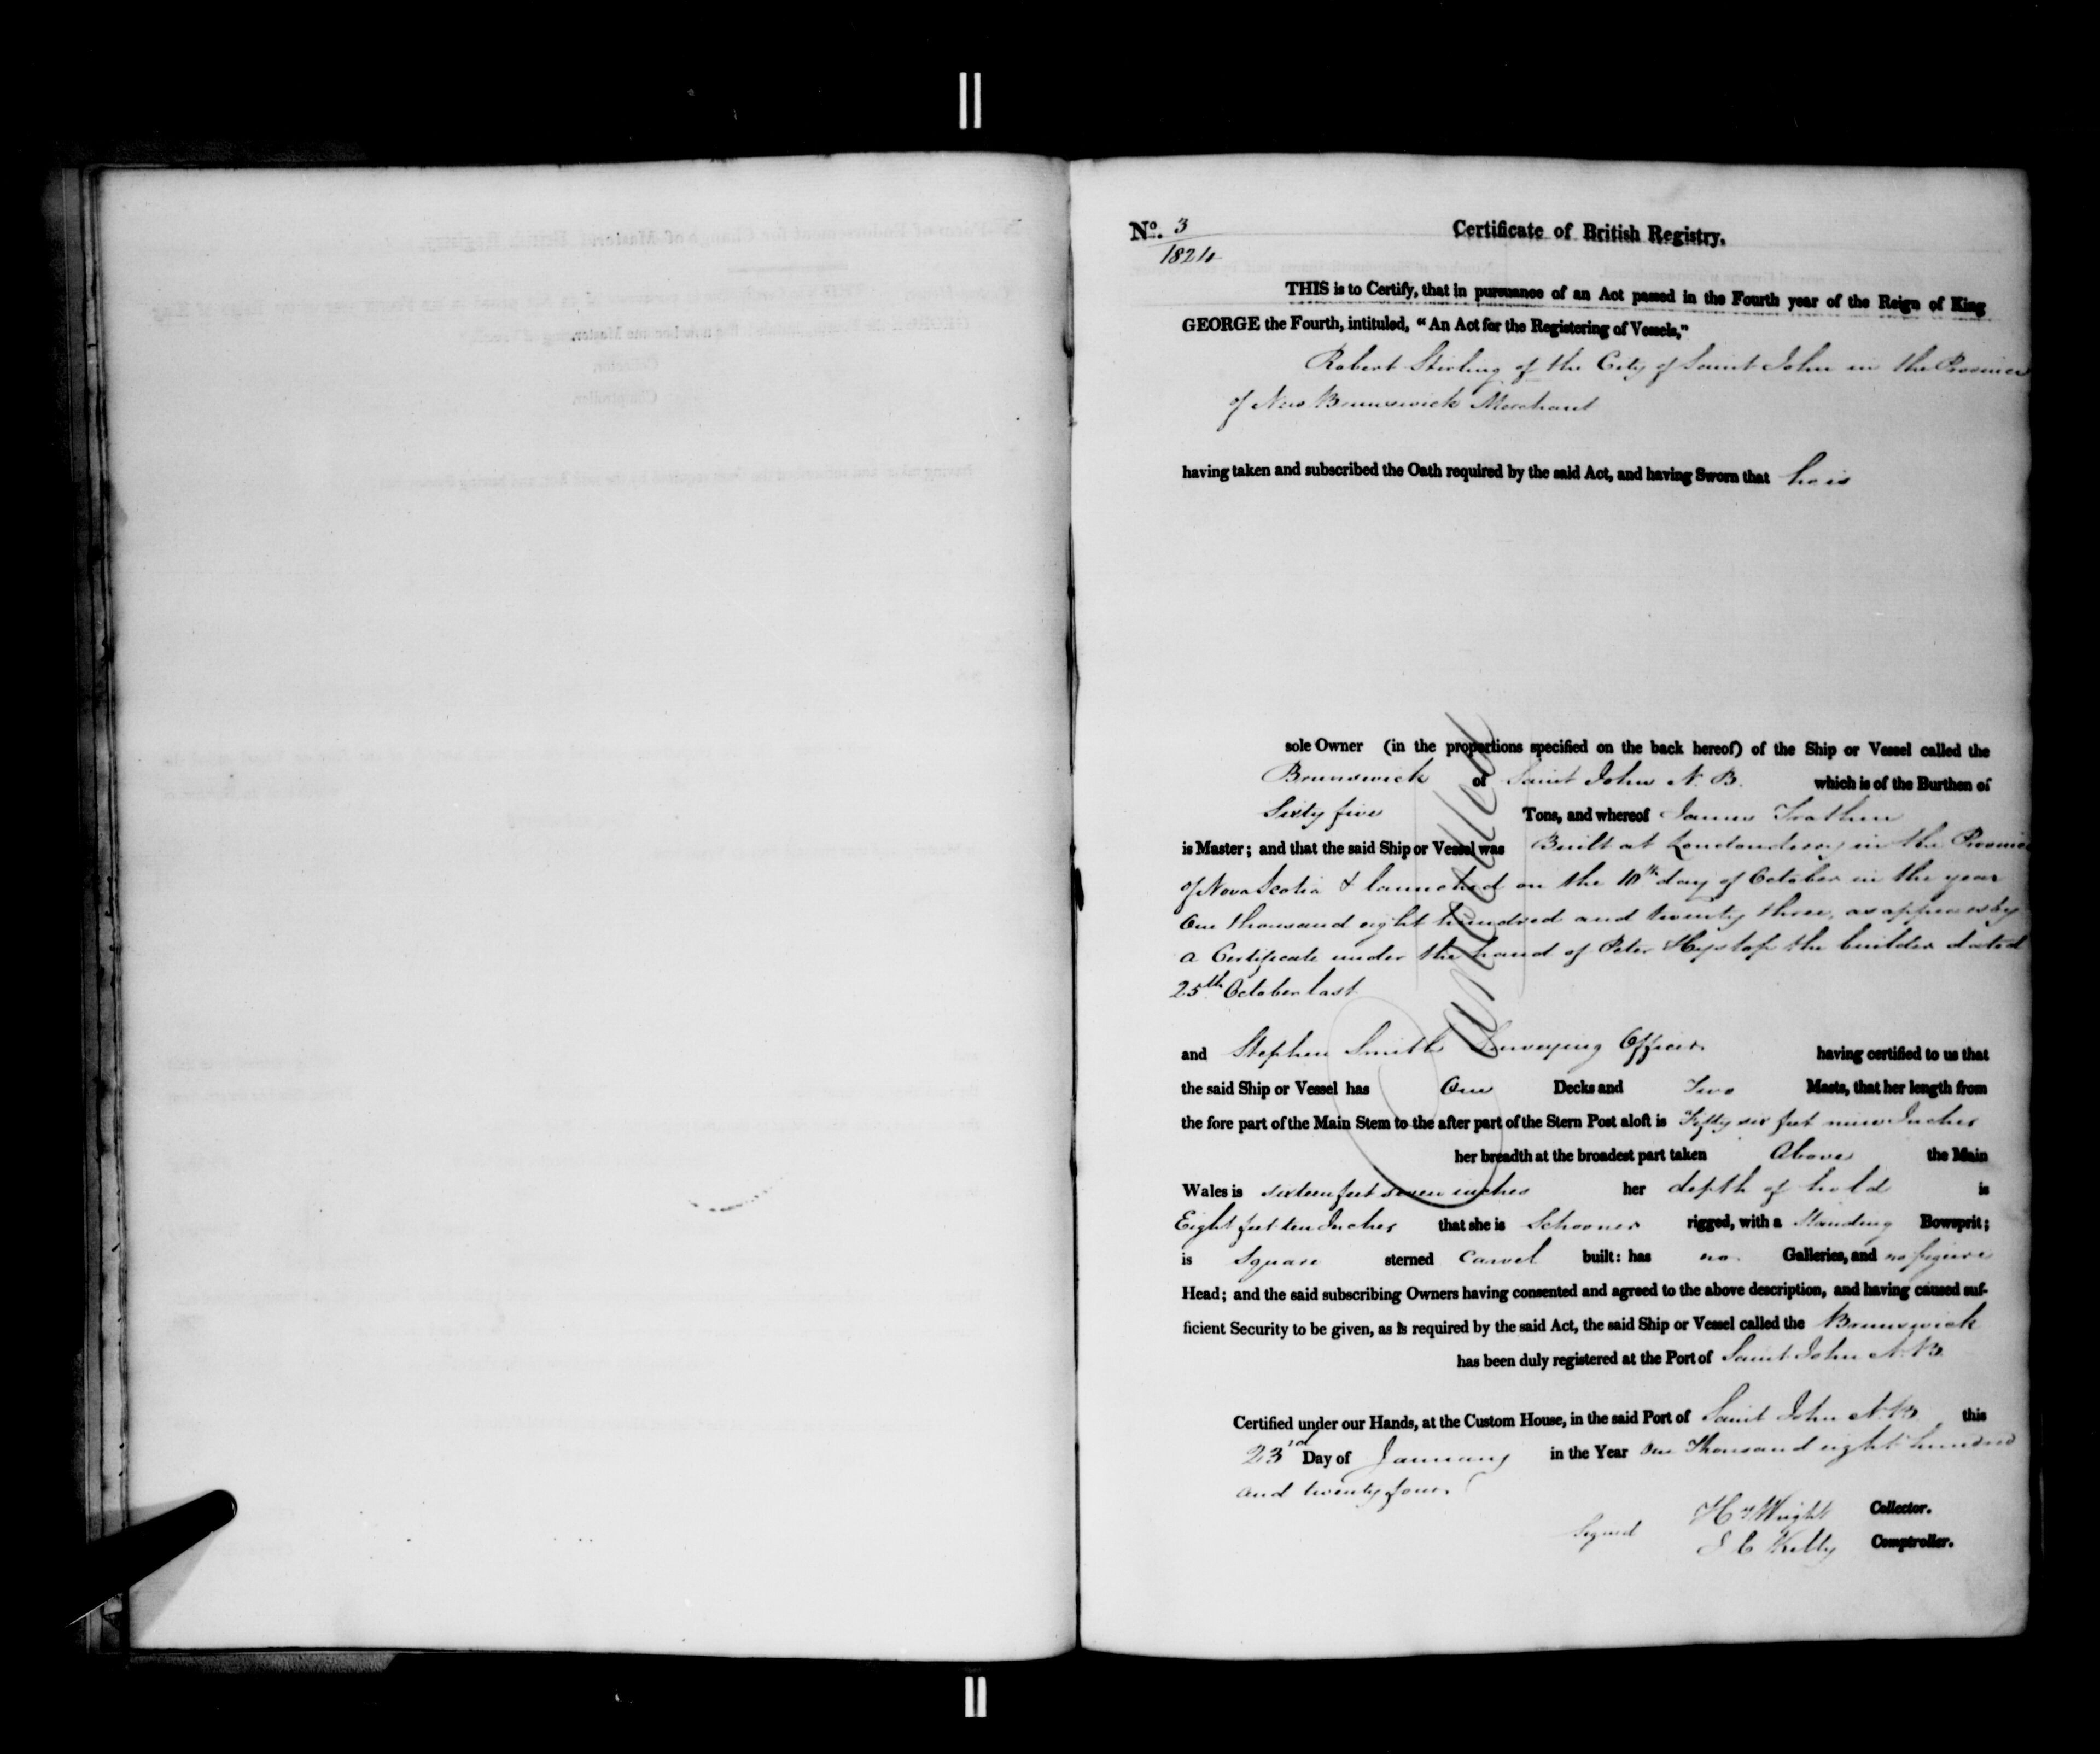 No. 3
1824
Certificate of British Registry.
THIS is to Certify, that in pursuance of an Act passed in the Fourth year of the Reign of King
GEORGE the Fourth, intituled, "An Act for the Registering of Vessels,"
Robert Stirling of the City of Saint John in the Province
of New Brunswick Merchant
having taken and subscribed the Oath required by the said Act, and having Sworn that he is
sole Owner (in the proportions specified on the back hereof) of the Ship or Vessel called the
Brunswick of Saint John N. B. which is of the Burthen of
Sixty five Tons, and whereof James Trathen
is Master; and that the said Ship or Vessel was Built at Londonderry in the Province
of Nova Scotia & launched on the 10th day of October in the year
One thousand eight hundred and twenty three, as appears by
a Certificate under the hand of Peter Hyslop the builder dated
25th October last
Cancelled
and Stephen Smith Surveying Officer having certified to us that
the said Ship or Vessel has One Decks and Two Masts, that her length from
the fore part of the Main Stem to the after part of the Stern Post aloft is Fifty six feet nine Inches
her breadth at the broadest part taken Above the Main
Wales is sixteen feet seven inches her depth of hold is
Eight feet ten Inches that she is Schooner rigged, with a Standing Bowsprit;
is Square sterned Carvel built: has no Galleries, and no figure
Head; and the said subscribing Owners having consented and agreed to the above description, and having caused suf-
ficient Security to be given, as is required by the said Act, the said Ship or Vessel called the Brunswick
has been duly registered at the Port of Saint John N.B.
Certified under our Hands, at the Custom House, in the said Port of Saint John N.B. this
23rd Day of January in the Year One Thousand eight hundred
and twenty four.
Signed Hy Wright Collector.
S C Kelly Comptroller.